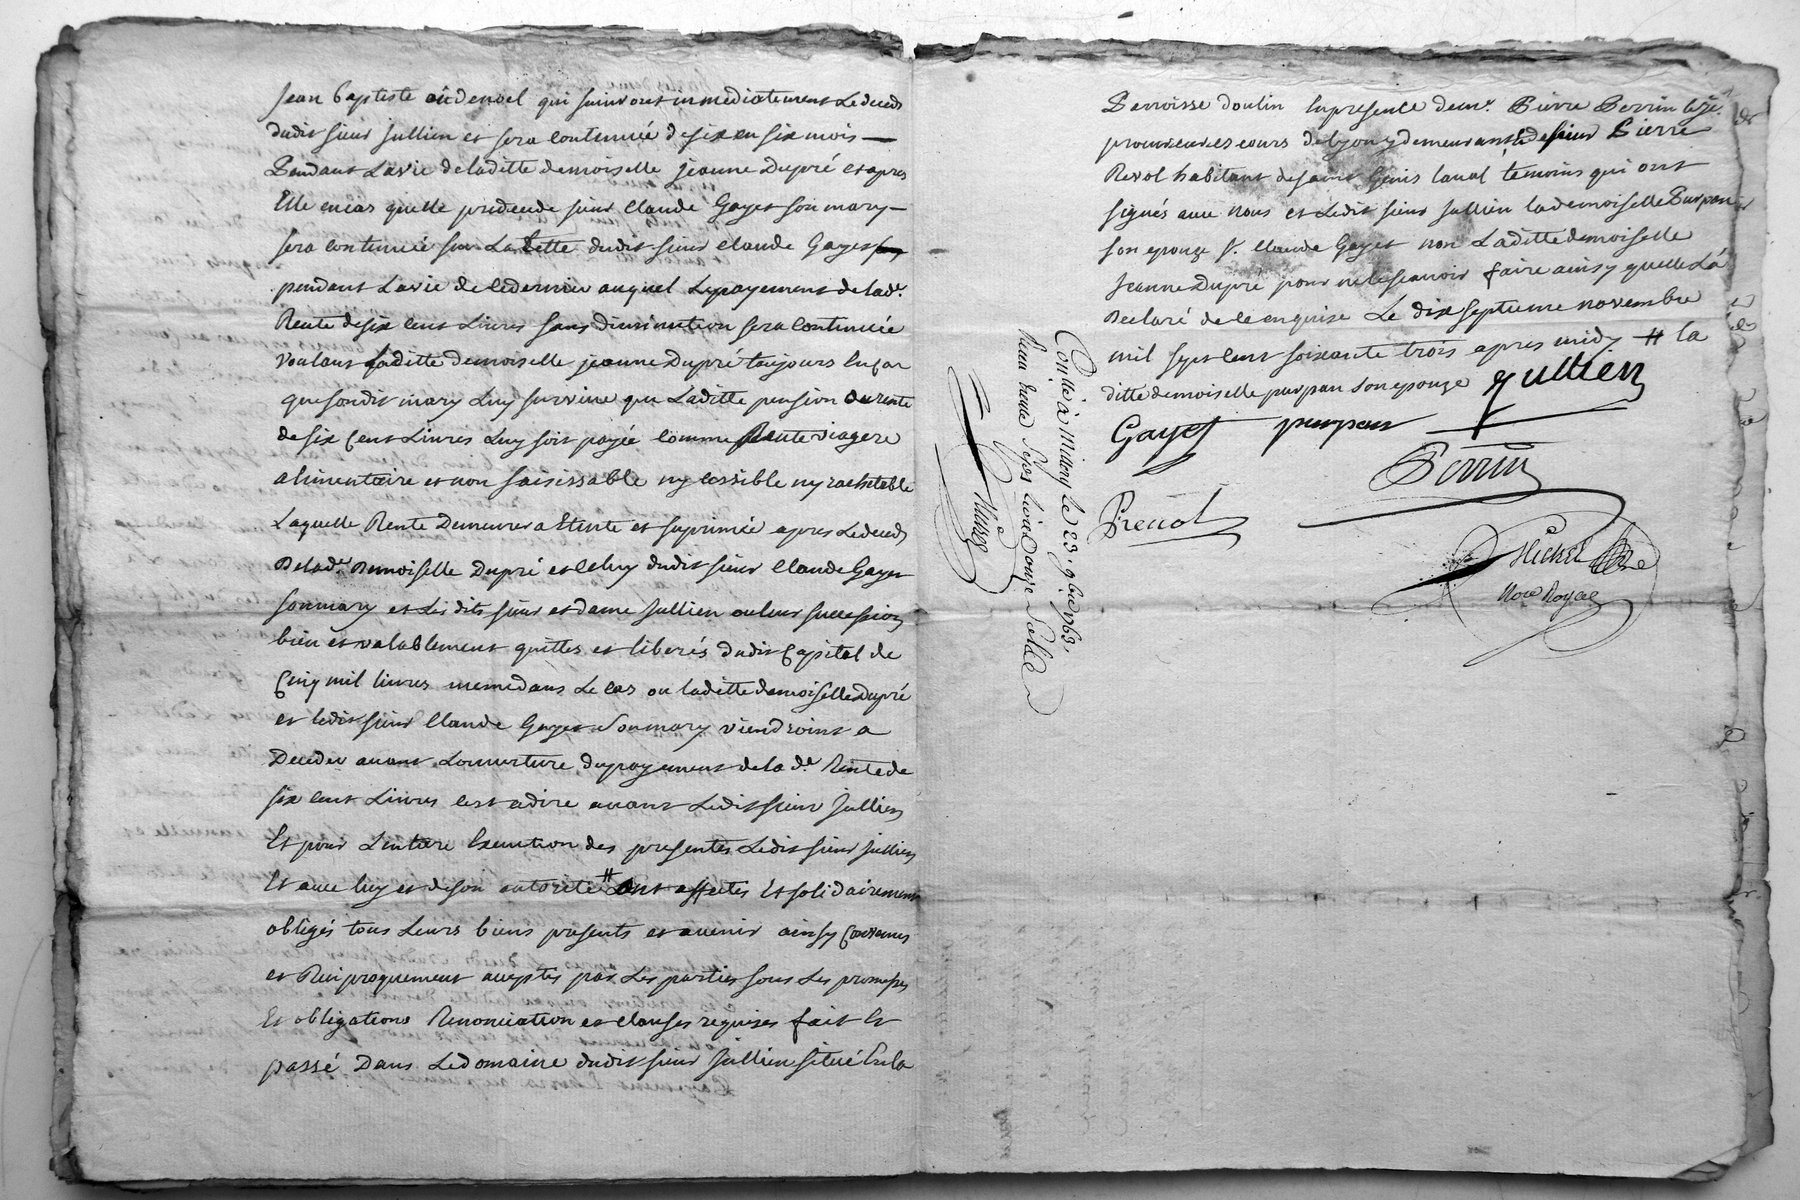 Jean baptiste qui suivront immediatement Le deceds
dudit sieur jullien et sera continuée de six en six mois —
Pendant La vie de laditte demoiselle jeanne Dupré et apres
Elle en cas quelle predecede sieur Claude Gayet son mary —
sera continuée sur La tette dudit sieur Claude Gayet
pendant La vie de ce dernier auquel Le payement de lad.e
Rente de six cent Livres sans diminution sera continuée
voulant Laditte demoiselle jeanne Dupré toujours En cas
que sondit mary Luy survive que Laditte pension ou rente
de six Cent Livres Luy soit payée comme Rente viagere
alimentaire et non saisissable ny cessible ny rachetable
Laquelle Rente Demeurera Eteinte et suprimée apres Le deceds
De lad.e Demoiselle Dupré et celuy dudit sieur Claude Gayet
son mary et Les dits sieur et dame Jullien ou leur succession
bien et valablement quittes et liberés dudit Capital de
Cinq mil livres meme dans Le cas ou laditte demoiselle Dupré
et ledit sieur Claude Gayet son mary viendroint a
Deceder avant Louverture du payement de la d.e Rente de
six cent Livres cest adire avant Ledit sieur Jullien
Et pour Lentiere Execution des presentes Ledit sieur Jullien
Et avec luy et de son autorité # ont affectes Et solidairement
obligés tous Leurs biens presents et avenir ainsy Convenus
et Reciproquement aceptes par Les parties sous Les promesses
Et obligations Renonciation et clauses requises fait Et
passé Dans Le domaine dudit sieur Jullien situé En la
Perroisse doulin En presence de m.e Pierre Perrin
procureur es cours de Lyon y demeurant et de sieur Pierre
Revol habitant de saint Genis laval temoins qui ont
signés avec nous et Ledit sieur Jullien la demoiselle Purpan
son epouze S.r Claude Gayet non Laditte demoiselle
Jeanne Dupré pour ne le scavoir faire ainsy quelle La
Declaré de ce enquise Le dix septieme novembre
mil sept cent soixante trois apres midy # la
ditte demoiselle purpan son epouze Jullien
Gayet purpan
Perrin
P revol
Not.e Royal
Con.llé à Millery le 23. 9bre 1763.